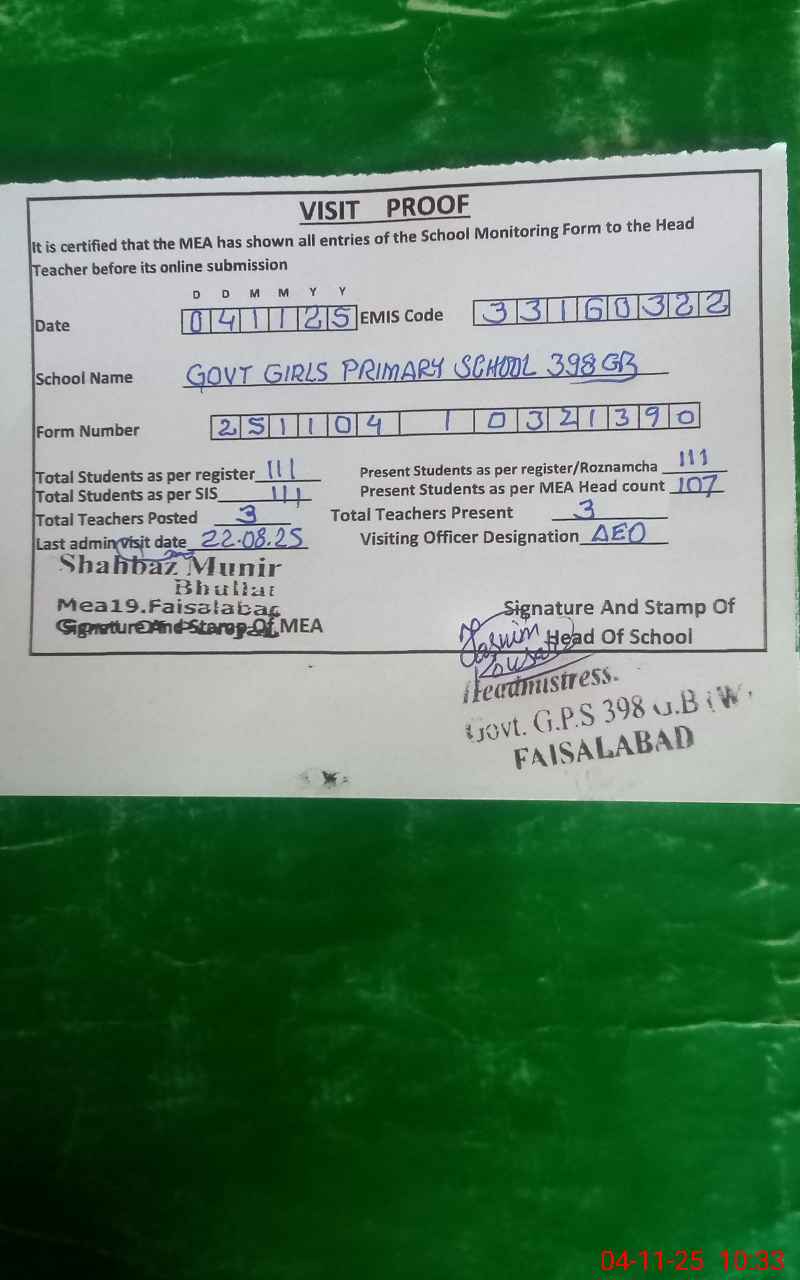 VISIT PROOF
It is certified that the MEA has shown all entries of the School Monitoring Form to the Head
Teacher before its online submission
D D M M Y Y
Date 041125 EMIS Code 33160322
School Name GOVT GIRLS PRIMARY SCHOOL 398 GB
Form Number 251104 1 0321390
Total Students as per register 111 Present Students as per register/Roznamcha 111
Total Students as per SIS 111 Present Students as per MEA Head count 107
Total Teachers Posted 3 Total Teachers Present 3
Last admin visit date 22.08.25 Visiting Officer Designation AEO
Shahbaz Munir
Bhullar
Mea19.Faisalabad
Signature And Stamp Of MEA
Signature And Stamp Of
Head Of School
Tasnim
Kousar
Headmistress.
Govt. G.P.S 398 G.B (W)
FAISALABAD
04-11-25 10:33